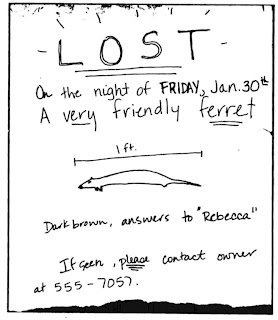 - LOST -
On the night of FRIDAY, Jan. 30th
A very friendly ferret
1 ft.
Dark brown, answers to "Rebecca"
If seen, please contact owner
at 555-7057.